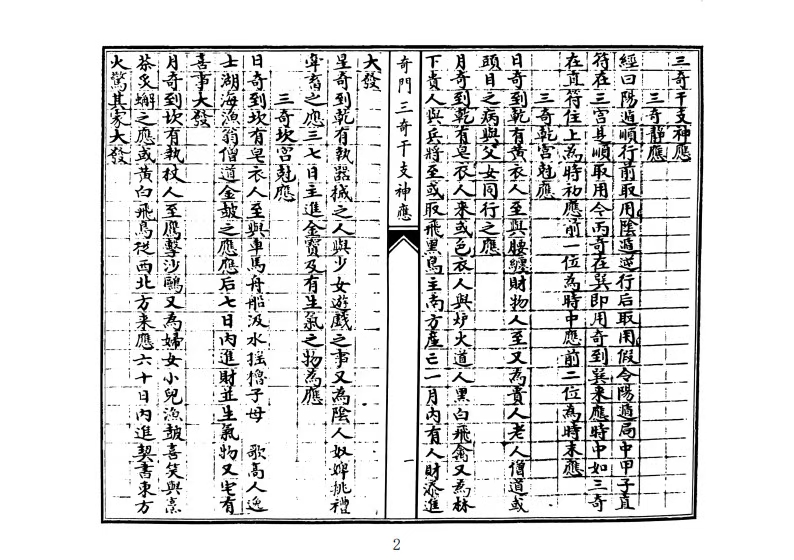 三奇干支神應
三奇靜應
經曰陽遁順行前取用陰遁逆行后取用假令陽遁局中甲子直
符在三宮具順取用令丙奇在巽即用奇到巽來應時中如三奇
在直符住上為時初應前一位為時中應前二位為時末應
三奇乾宮尅應
日奇到乾有黃衣人至與腰纏財物人至又為貴人老人僧道或
頭目之病與父女同行之應
月奇到乾有皂衣人來或色衣人與炉火道人黑白飛禽又為林
下貴人與兵將至或取飛黑鳥主南方產亡一月內有人財添進
奇門三奇干支神應
一
大發
星奇到乾有執器械之人與少女遊戲之事又為陰人奴婢挑禮
牽畜之應三七日主進金寶及有生氣之物為應
三奇坎宮尅應
日奇到坎有皂衣人至與車馬舟船汲水搖櫓子母 歌高人逸
士湖海漁翁僧道金皷之應應后七日內進財並生氣物又宅有
喜事大發
月奇到坎有執杖人至鷹擊沙鷗又為婦女小兒漁皷喜笑與烹
茶炙蝌之應或黃白飛鳥從西北方來應六十日內進契書東方
火驚其家大發
2